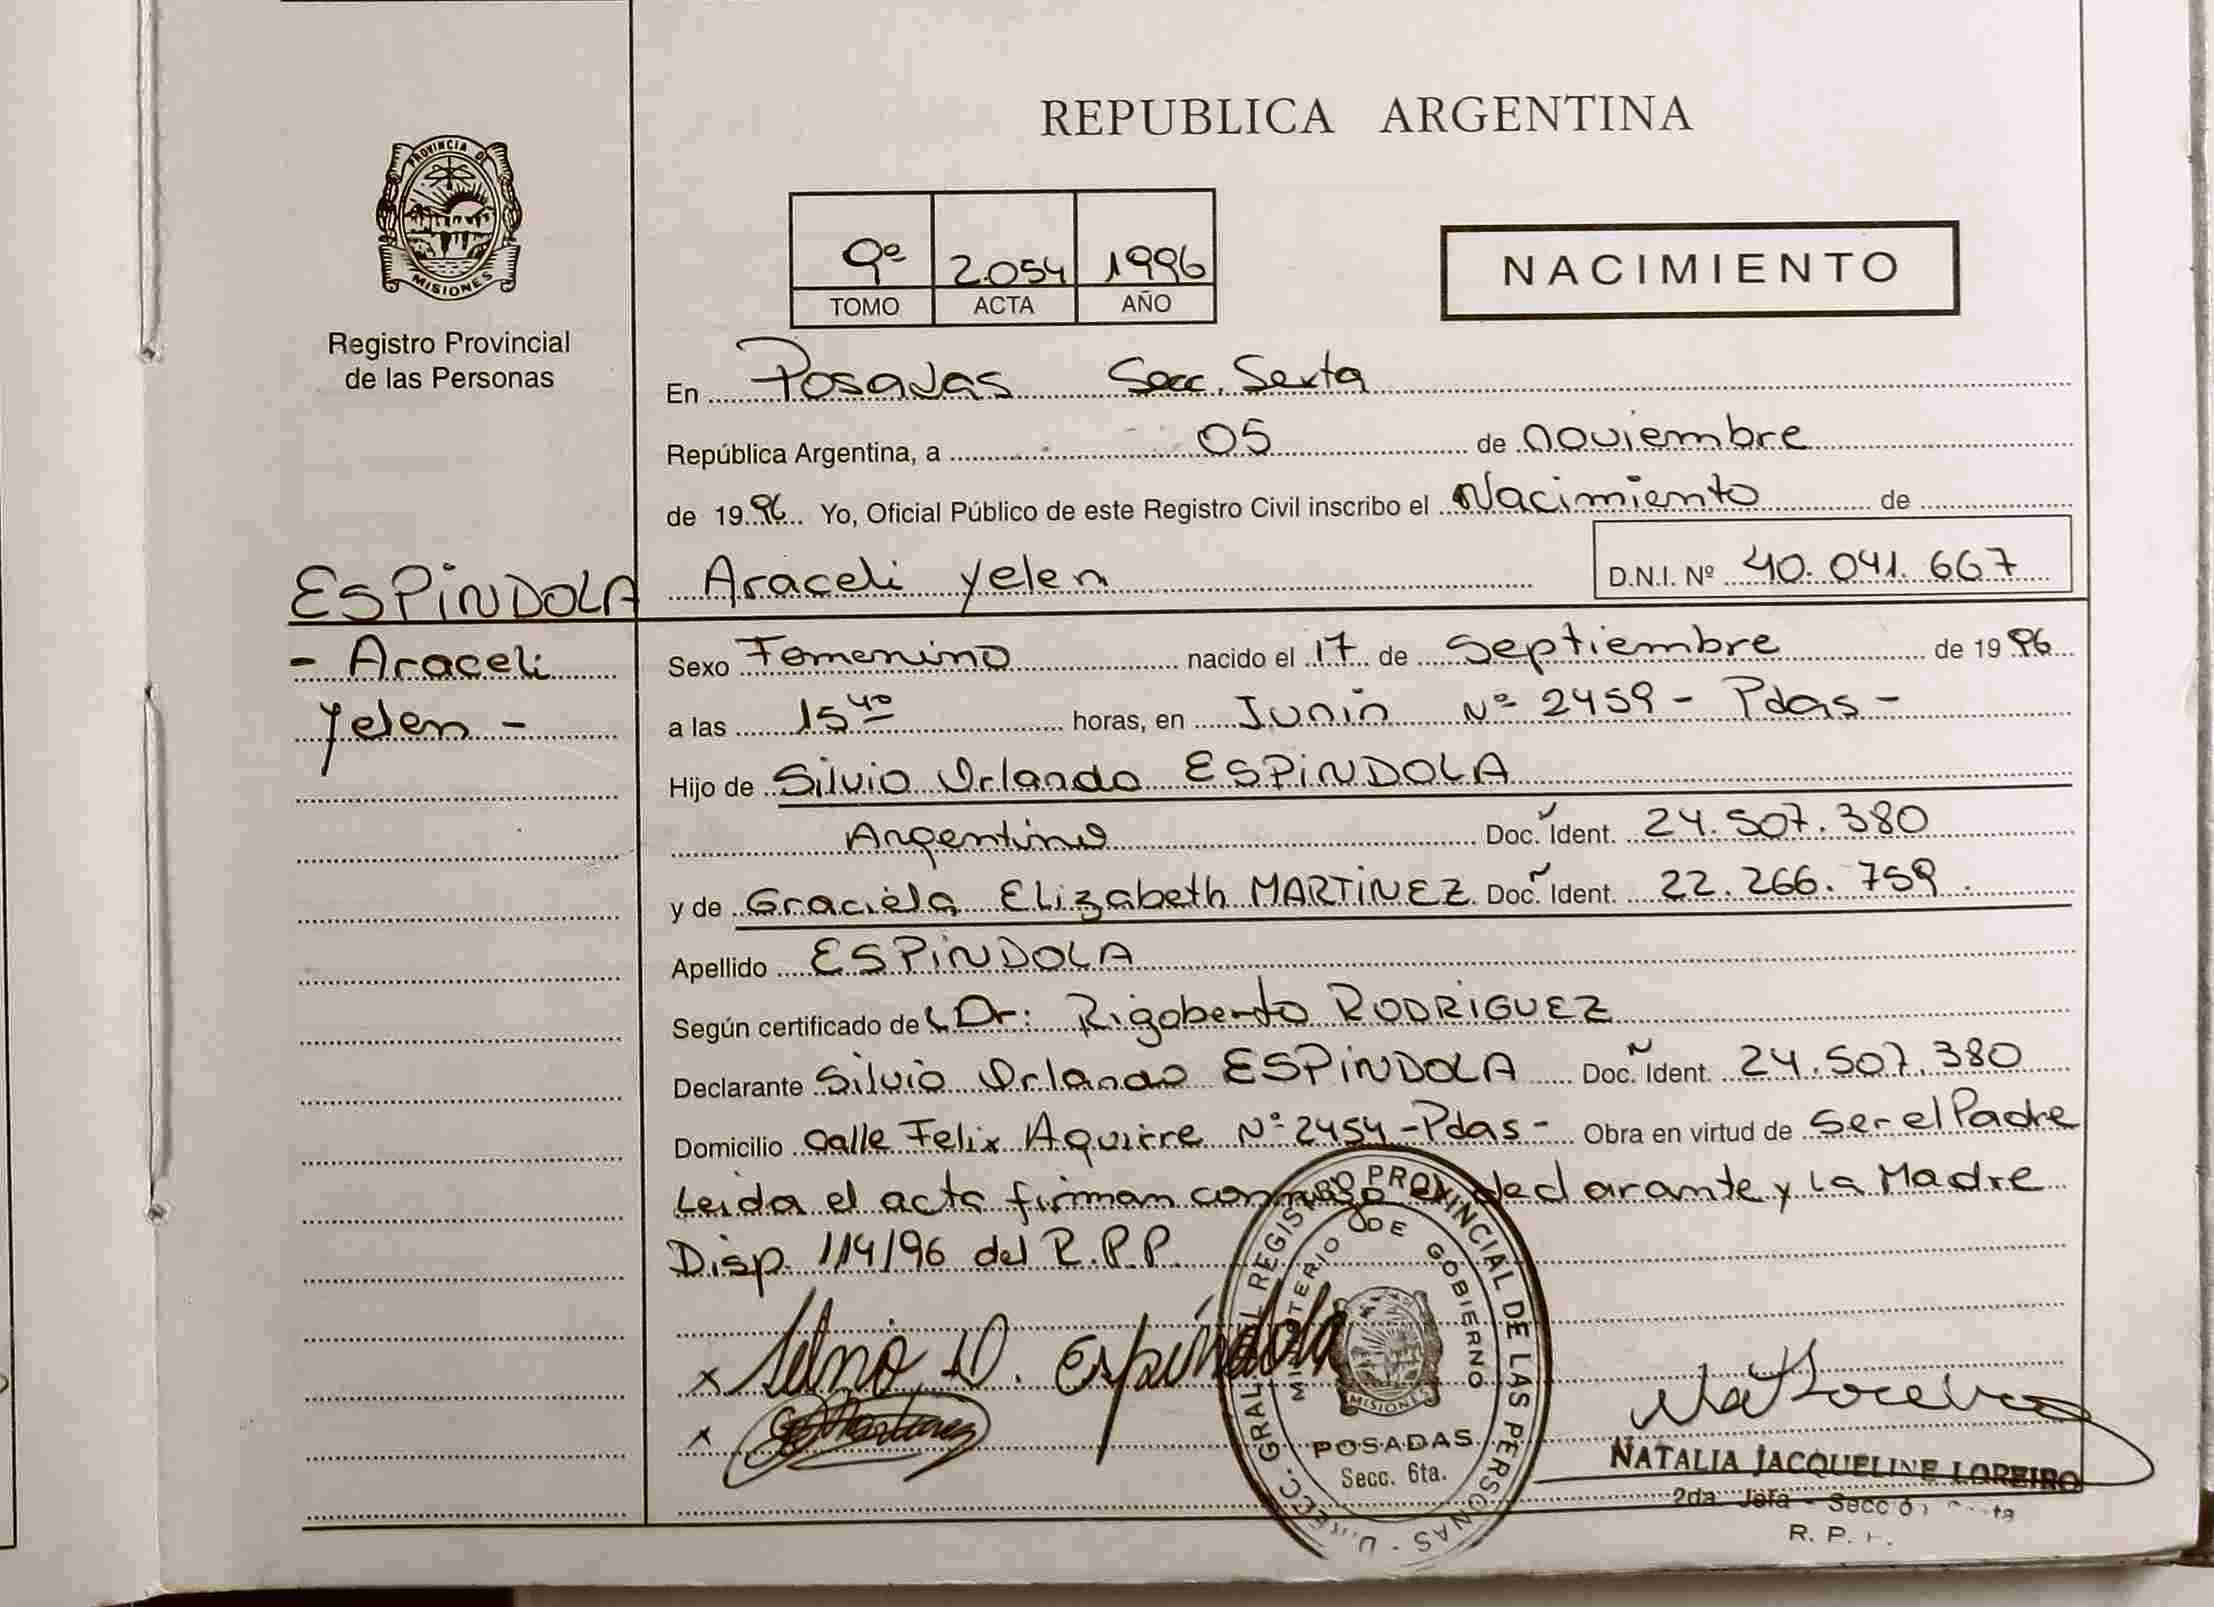 REPUBLICA ARGENTINA
PROVINCIA DE
MISIONES
Registro Provincial
de las Personas
9º 2.054 1996
TOMO ACTA AÑO
NACIMIENTO
En Posadas Secc. Sexta
República Argentina, a 05 de noviembre
de 1996 Yo, Oficial Público de este Registro Civil inscribo el Nacimiento de
ESPINDOLA Araceli Yelen D.N.I. Nº 40.041.667
- Araceli
Yelen -
Sexo Femenino nacido el 17 de Septiembre de 1996
a las 15 40 horas, en Junin Nº 2459 - Pdas -
Hijo de Silvio Orlando ESPINDOLA
Argentino Doc. Ident. 24.507.380
y de Graciela Elizabeth MARTINEZ Doc. Ident. 22.266.759.
Apellido ESPINDOLA
Según certificado de Dr: Rigoberto RODRIGUEZ
Declarante Silvio Orlando ESPINDOLA Doc. Ident. 24.507.380
Domicilio Calle Felix Aguirre Nº 2454 - Pdas - Obra en virtud de Ser el Padre
Leida el acta firman conmigo el declarante y La Madre
Disp. 114/96 del R.P.P.
x Silvio O. Espíndola
x Martinez
DIRECC. GRAL. DEL REGISTRO PROVINCIAL DE LAS PERSONAS
MINISTERIO DE GOBIERNO
MISIONES
POSADAS
Secc. 6ta.
NATALIA JACQUELINE LOREIRO
2da. Jefa - Secc
R. P.